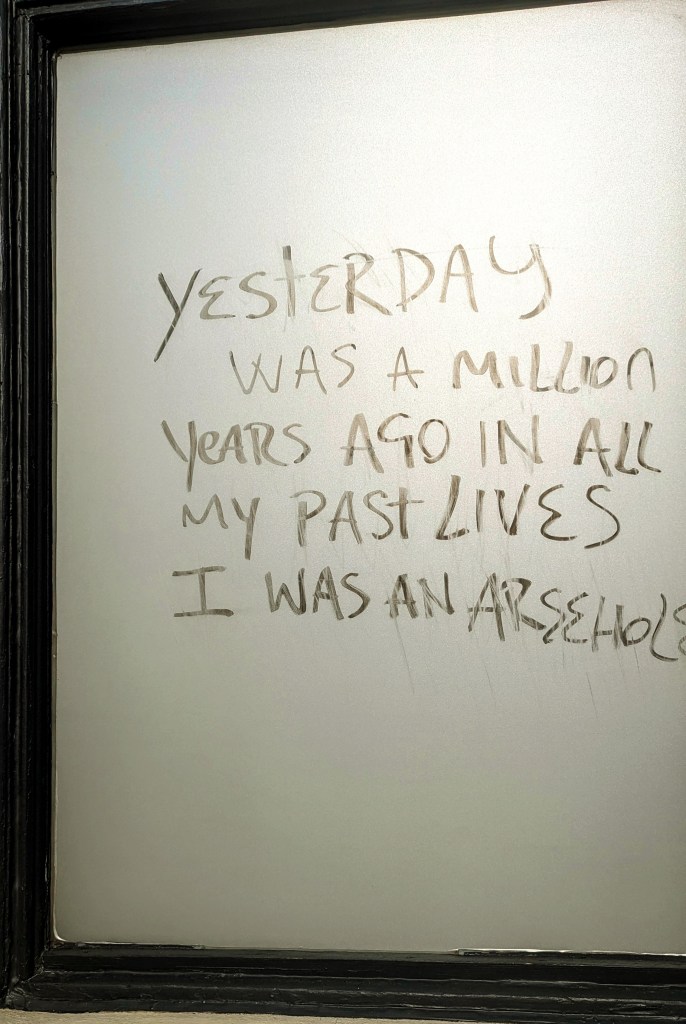 YESTERDAY
WAS A MILLION
YEARS AGO IN ALL
MY PAST LIVES
I WAS AN ARSEHOLE